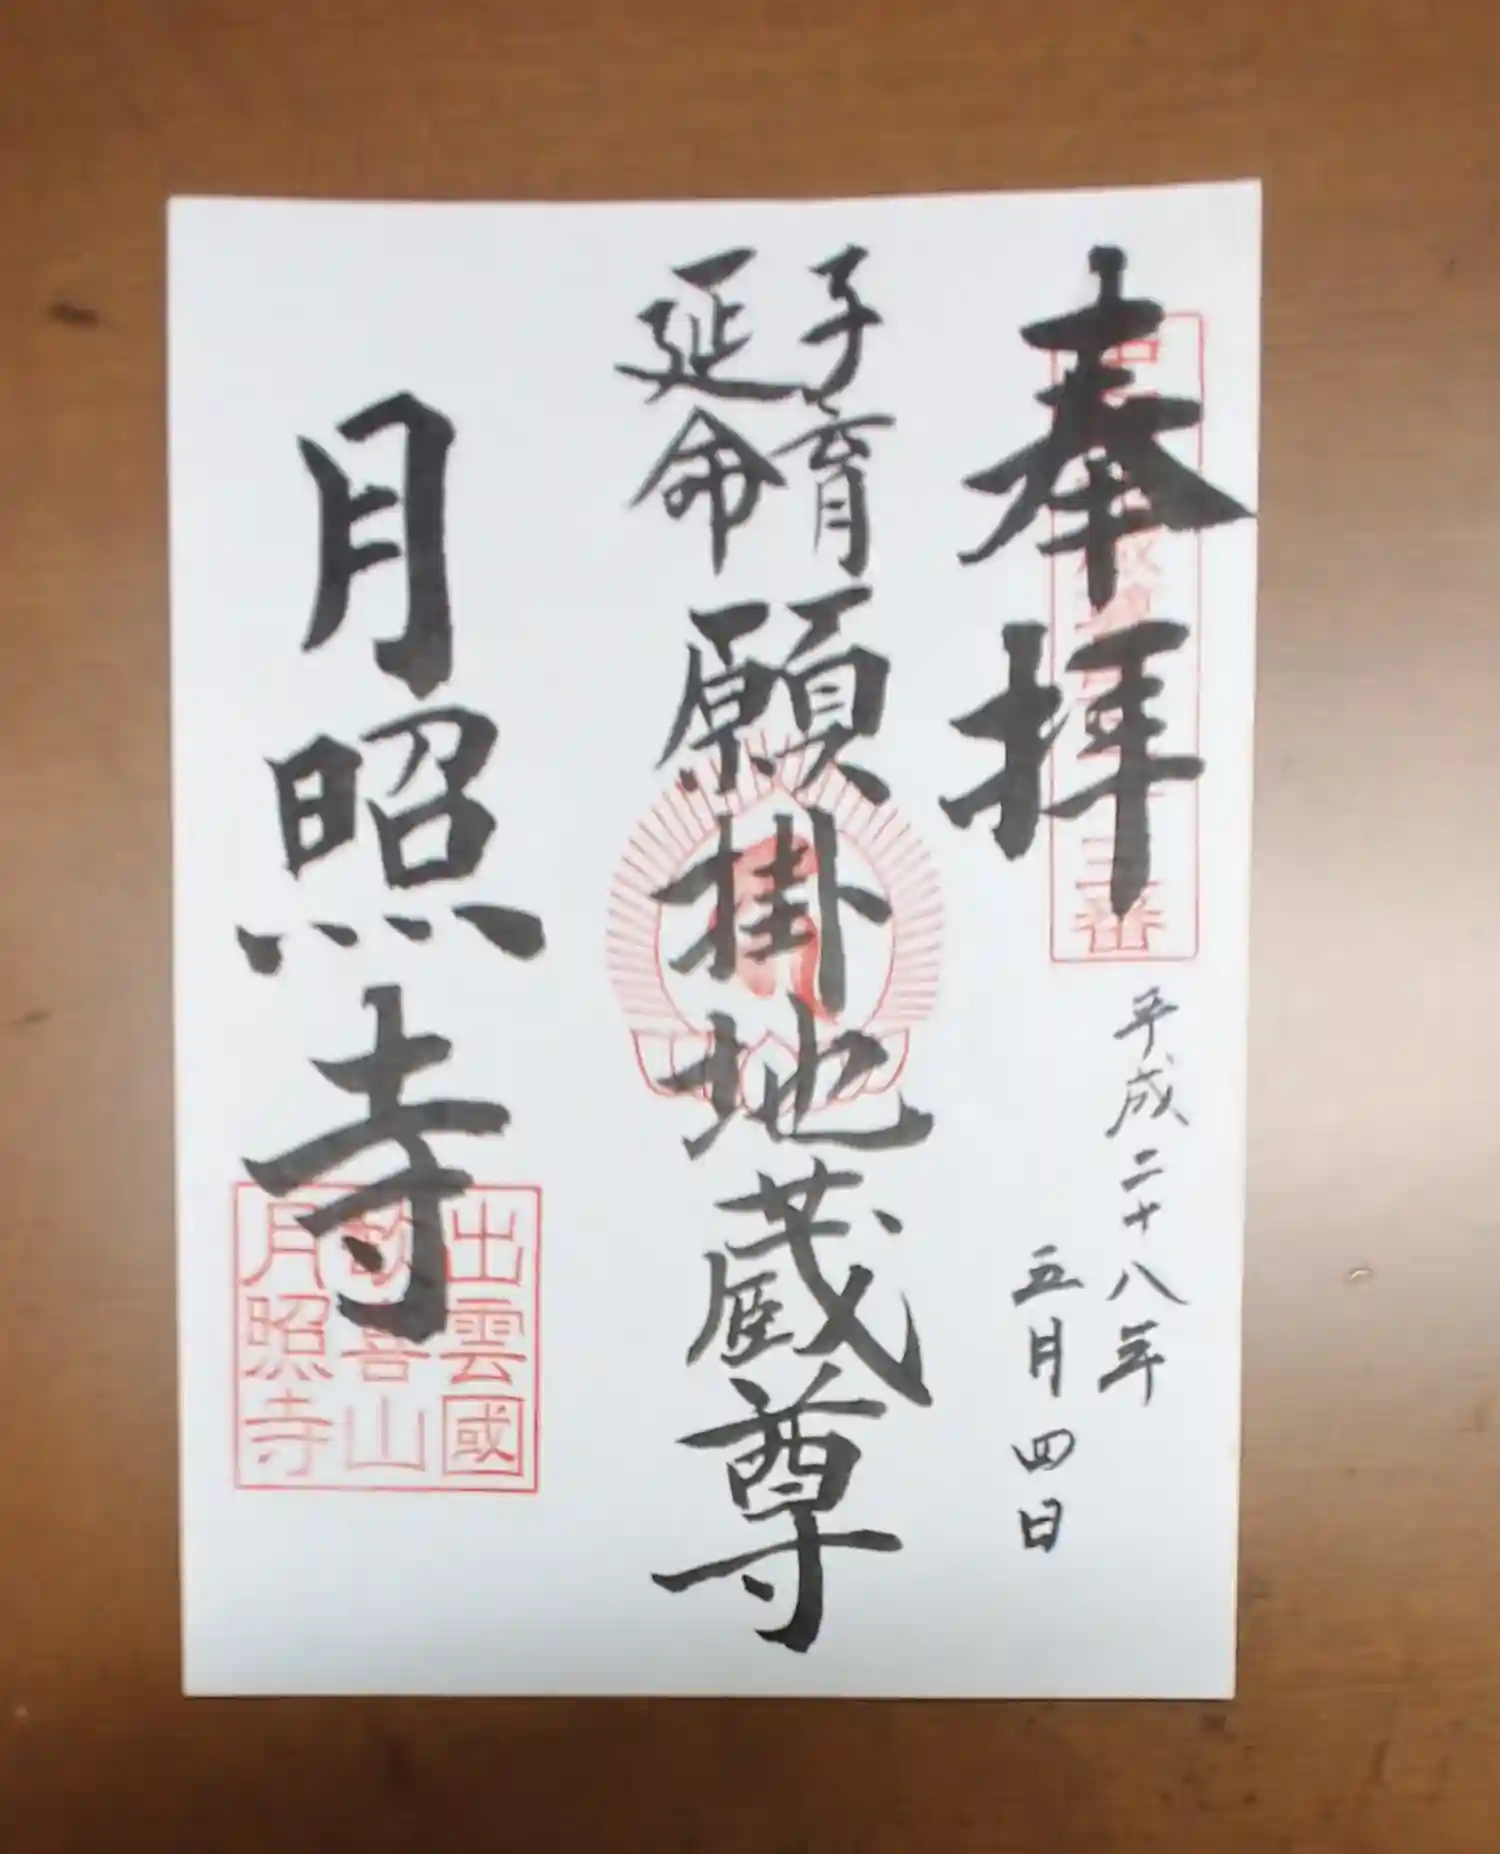 奉拝
平成二十八年
五月四日
子育
延命
願掛地蔵尊
月照寺
出雲國
歓喜山
月照寺